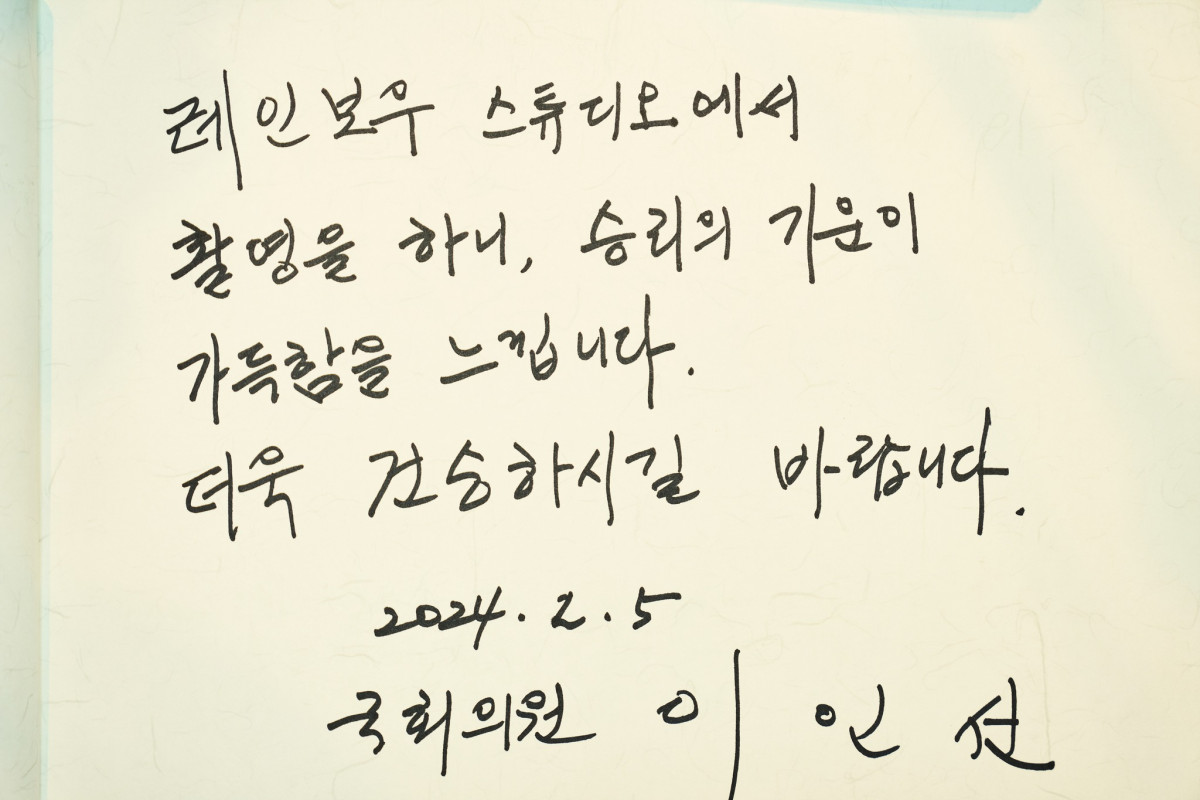 레인보우 스튜디오에서
촬영을 하니, 승리의 기운이
가득함을 느낍니다.
더욱 건승하시길 바랍니다.
2024. 2. 5
국회의원 이 인 선